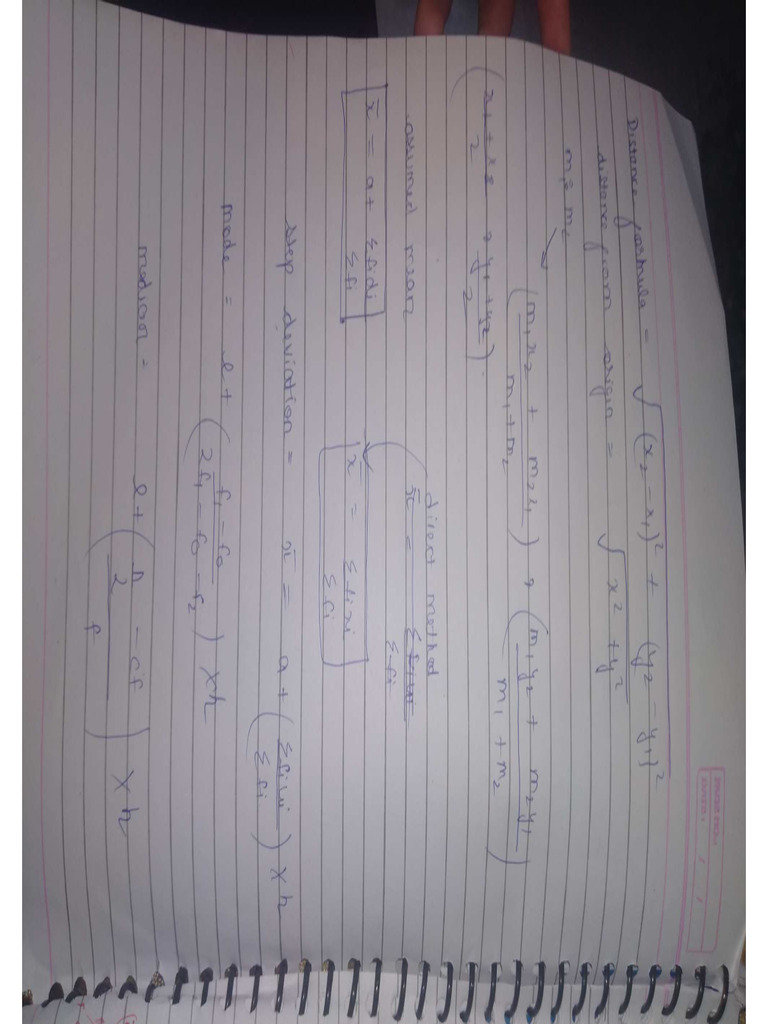 PAGE NO.:
DATE: / /
Distance formula = √(x₂ - x₁)² + (y₂ - y₁)²
distance from origin = √x² + y²
m₁:m₂
(m₁x₂ + m₂x₁ / m₁+m₂) , (m₁y₂ + m₂y₁ / m₁ + m₂)
(x₁ + x₂ / 2 , y₁ + y₂ / 2).
assumed mean
direct method
x̄ = a + Σfidi / Σfi
x̄ = Σfixi / Σfi
step deviation = x̄ = a + (Σfiui / Σfi) × h
mode = l + (f₁ - f₀ / 2f₁ - f₀ - f₂) × h
median = l + (n/2 - cf / f) × h